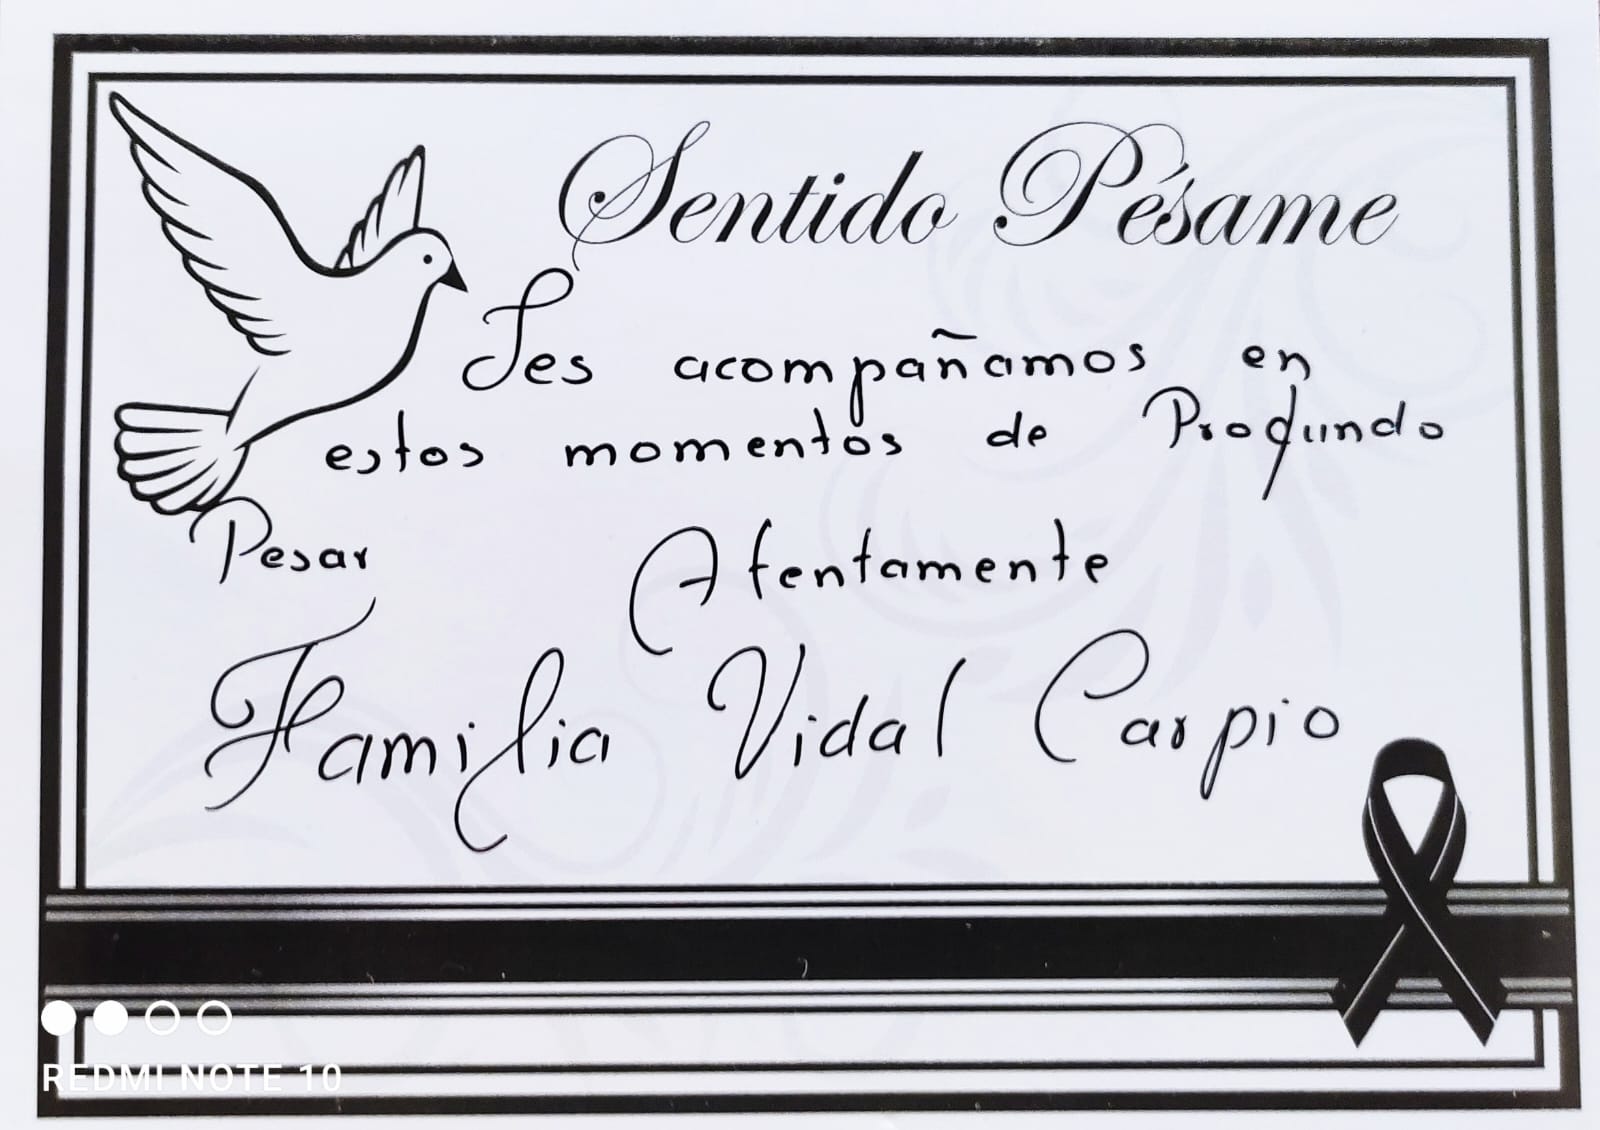 Sentido Pésame
Les acompañamos en
estos momentos de Profundo
Pesar Atentamente
Familia Vidal Carpio
REDMI NOTE 10